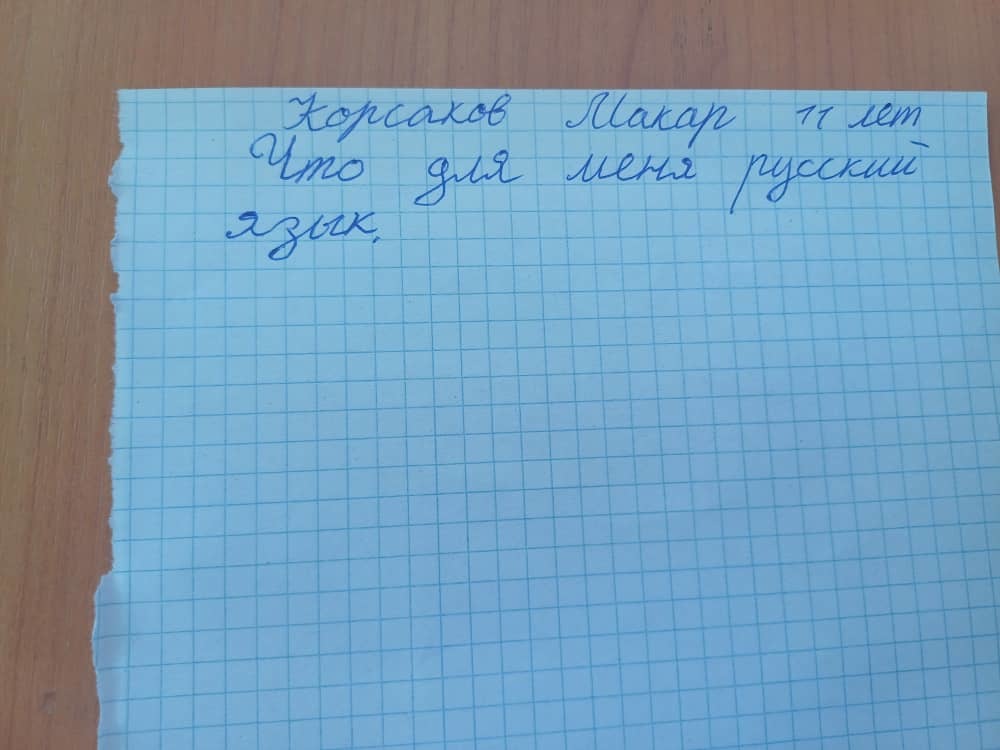 Корсаков Макар 11 лет
Что для меня русский
язык.